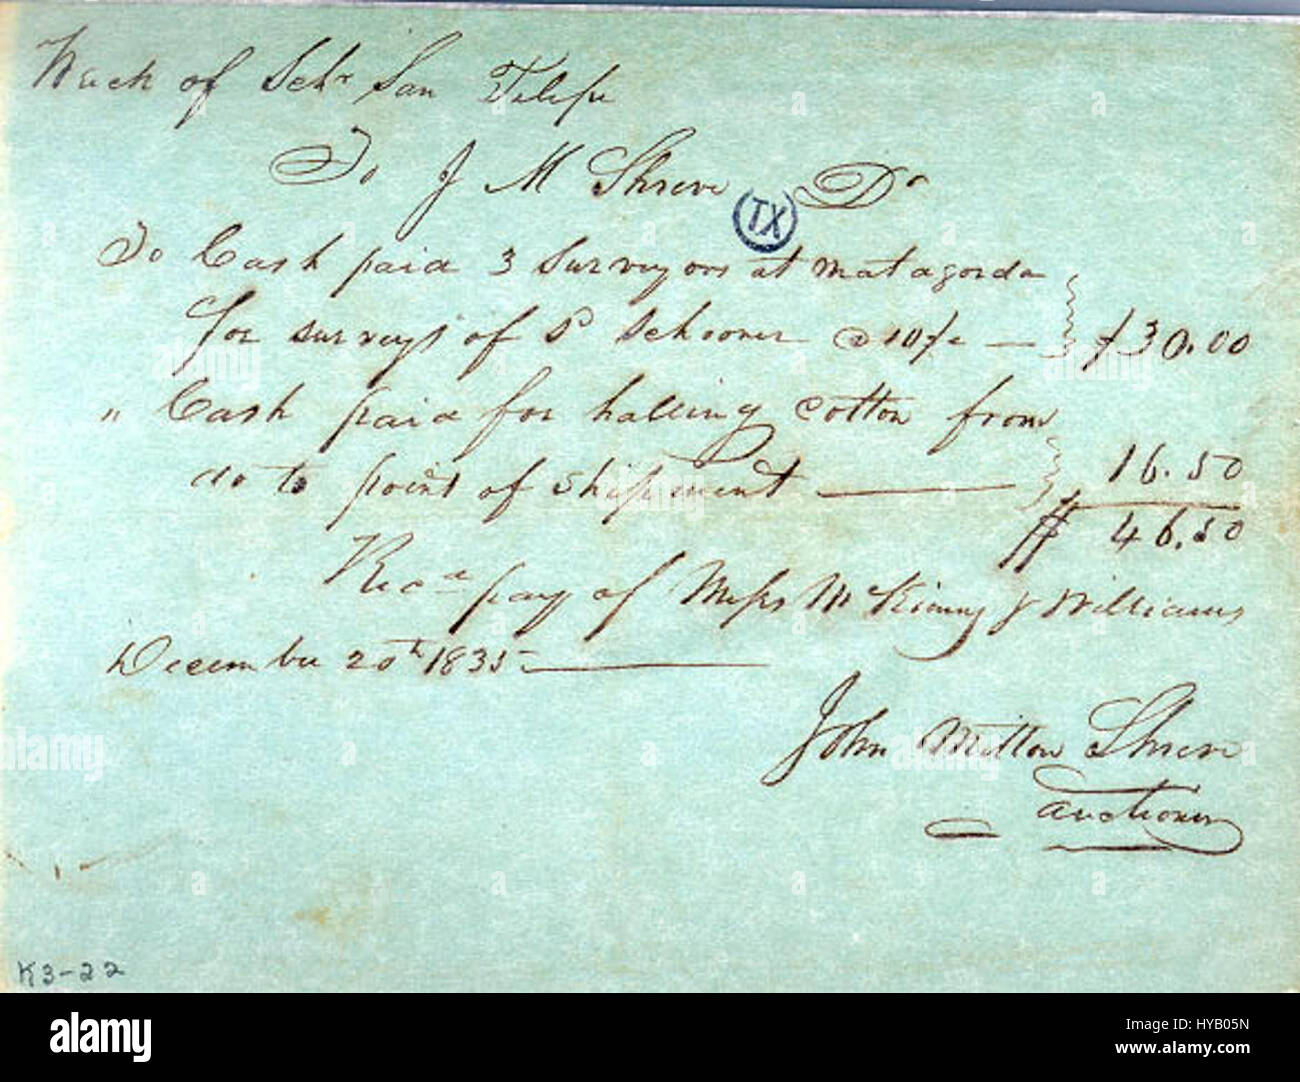 Wreck of Schr San Felipe
To J M Shreve Dr
TX
To Cash paid 3 Surveyors at Matagorda
for surveys of Sd Schooner @ 10/c — $30.00
" Cash paid for halling cotton from
do to point of shipment — 16.50
$ 46.50
Recd pay of Messrs McKinney & Williams
December 20th 1835 —
John Milton Shreve
auctioner
K3-22
alamy
alamy
Image ID: HYB05N
www.alamy.com